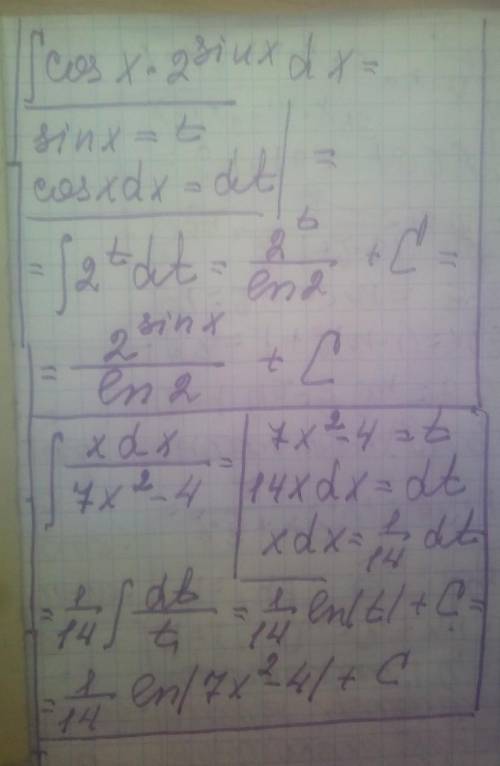 ∫cos x · 2^sin x dx =
sin x = t
cos x dx = dt | =
= ∫2^t dt = 2^t / ln 2 + C =
= 2^sin x / ln 2 + C
∫ x dx / 7x² - 4 = | 7x² - 4 = t
14x dx = dt
x dx = 1/14 dt
= 1/14 ∫ dt / t = 1/14 ln|t| + C =
= 1/14 ln|7x² - 4| + C